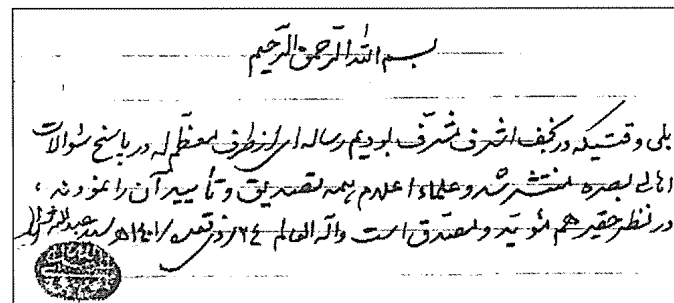 بسم الله الرحمن الرحیم
بلی وقتیکه در نجف اشرف مشرف بودیم رساله ای از طرف معظم له در پاسخ سوالات
اهالی بصره منتشر شد و علماء اعلام همه تصدیق و تأیید آن را نمودند،
در نظر حقیر هم مؤید و مصدق است والله العالم ٢٤ ذی قعده ١٤٠١ھ سید عبدالله